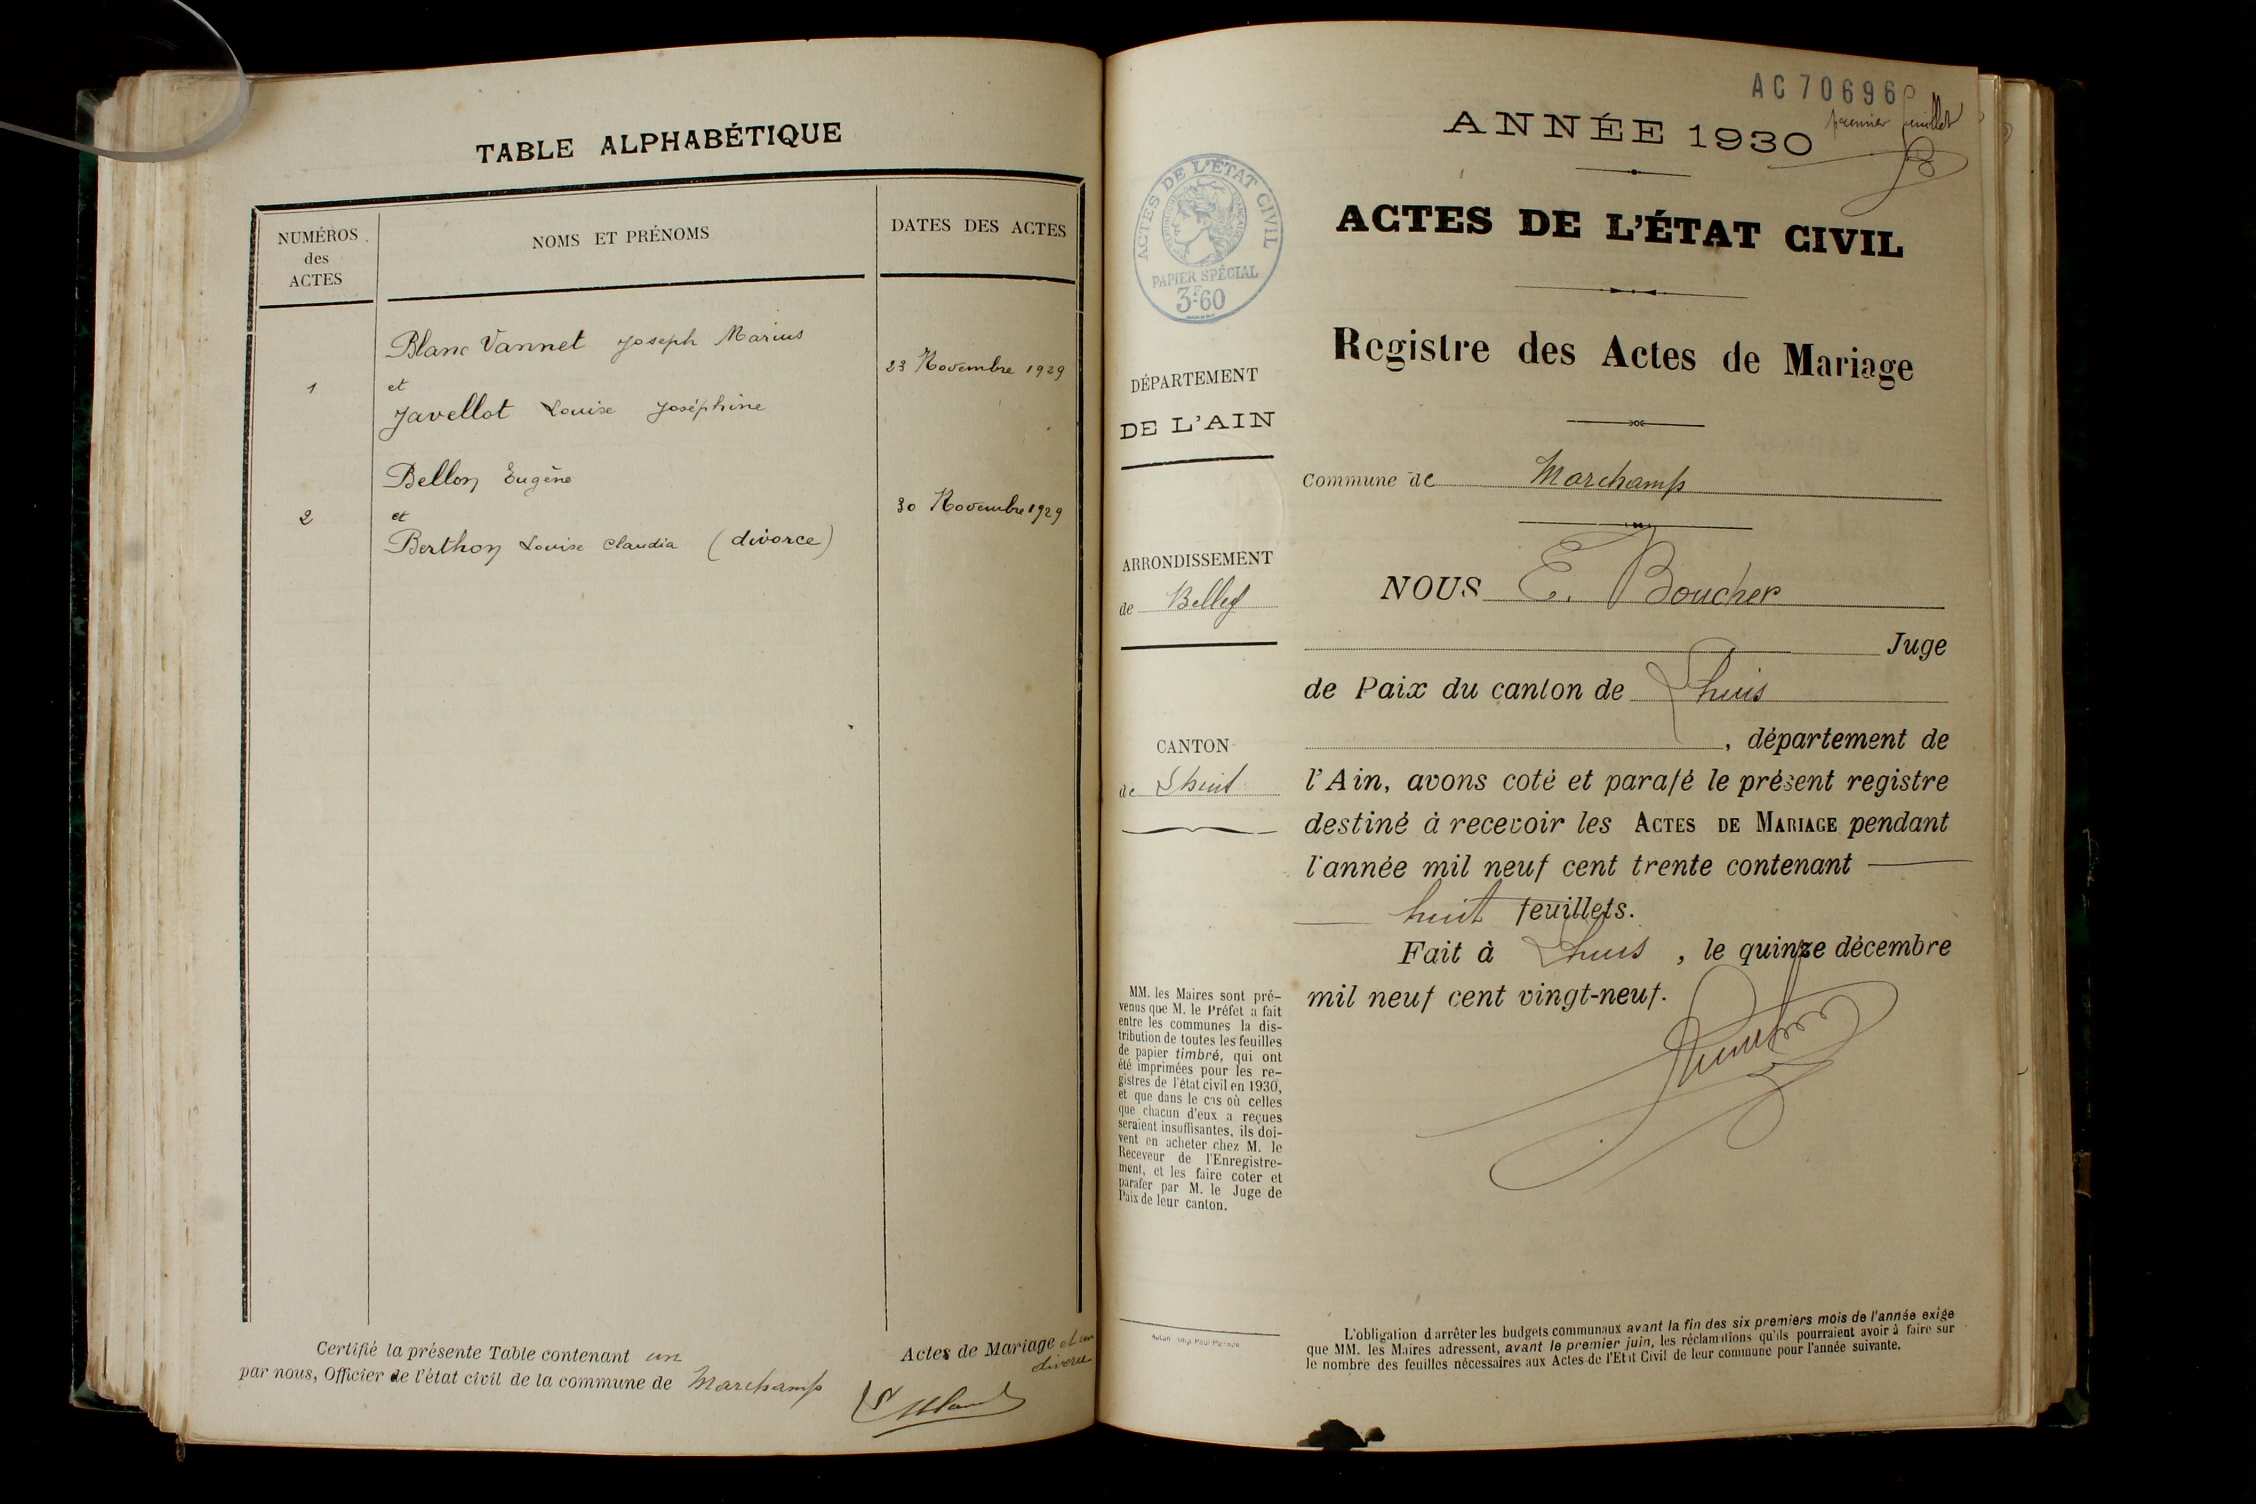 TABLE ALPHABÉTIQUE
NUMÉROS
des
ACTES
NOMS ET PRÉNOMS
DATES DES ACTES
Blanc Vannet Joseph Marius
1
et
23 Novembre 1929
Javellot Louise Joséphine
Bellon Eugène
2
et
30 Novembre 1929
Berthon Louise Claudia (divorce)
Certifié la présente Table contenant un Actes de Mariage et un
divorce
par nous, Officier de l'état civil de la commune de Marchamp
AC 70696
premier feuillet
ANNÉE 1930
ACTES DE L'ÉTAT CIVIL
PAPIER SPÉCIAL
3F60
ACTES DE L'ÉTAT CIVIL
Registre des Actes de Mariage
DÉPARTEMENT
DE L'AIN
Commune de Marchamp
ARRONDISSEMENT
de Belley
NOUS E. Boucher
Juge
de Paix du canton de Lhuis
CANTON
de Lhuis
, département de
l'Ain, avons coté et parafé le présent registre
destiné à recevoir les ACTES DE MARIAGE pendant
l'année mil neuf cent trente contenant
huit feuillets.
Fait à Lhuis, le quinze décembre
mil neuf cent vingt-neuf.
MM. les Maires sont pré-
venus que M. le Préfet a fait
entre les communes la dis-
tribution de toutes les feuilles
de papier timbré, qui ont
été imprimées pour les re-
gistres de l'état civil en 1930,
et que dans le cas où celles
que chacun d'eux a reçues
seraient insuffisantes, ils doi-
vent en acheter chez M. le
Receveur de l'Enregistre-
ment, et les faire coter et
parafer par M. le Juge de
Paix de leur canton.
L'obligation d'arrêter les budgets communaux avant la fin des six premiers mois de l'année exige
que MM. les Maires adressent, avant le premier juin, les réclamations qu'ils pourraient avoir à faire sur
le nombre des feuilles nécessaires aux Actes de l'Etat Civil de leur commune pour l'année suivante.